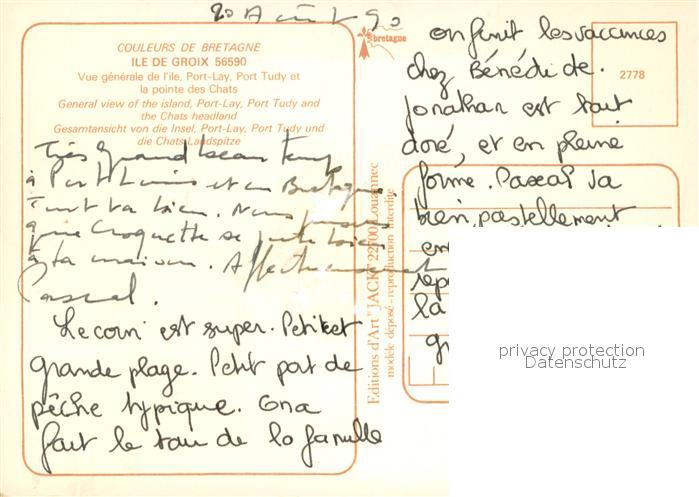 20 Août 90
COULEURS DE BRETAGNE
ILE DE GROIX 56590
Vue générale de l'ile, Port-Lay, Port Tudy et
la pointe des Chats
General view of the island, Port-Lay, Port Tudy and
the Chats headland
Gesamtansicht von die Insel, Port-Lay, Port Tudy und
die Chats Landspitze
Très grand beau temps
à Port Louis et en Bretagne
Tout va bien. Nous
que Croquette se porte bien
à la maison. Affectueusement
Pascal.
Le coin est super. Petite et
grande plage. Petit port de
pêche typique. On a
fait le tour de la famille
bretagne
Editions d'Art "JACK" 22700 Louannec
modèle déposé - reproduction interdite
2778
on finit les vaccances
chez Bénédicte.
Jonathan est tout
doré, et en pleine
forme. Pascal va
bien, pastellement
en
rep
la
gr
privacy protection
Datenschutz